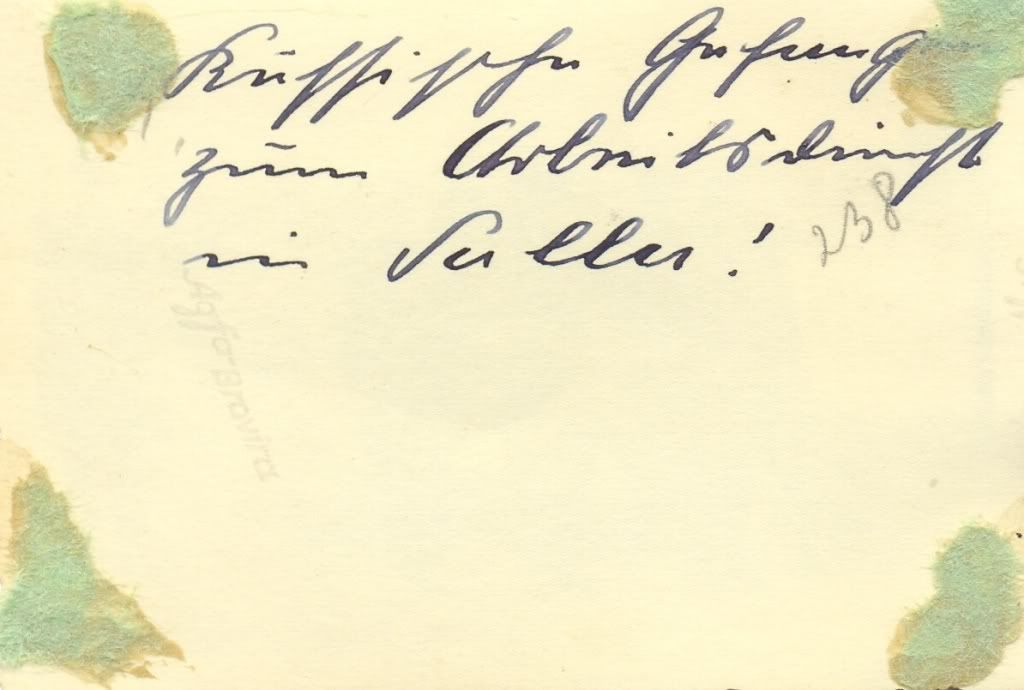 Russische Gefang
zum Arbeitsdienst
in Salla!
238
Agfa-Brovira